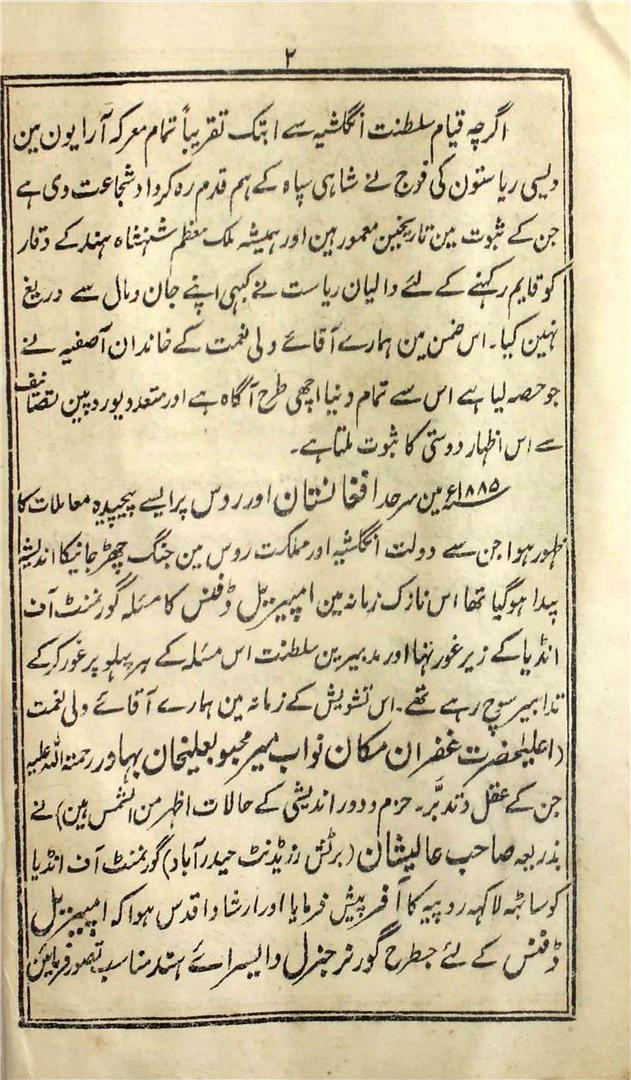 ۲
اگرچہ قیام سلطنت انگلشیہ سے ابتک تقریباً تمام معرکہ آرایون مین
دیسی ریاستون کی فوج نے شاہی سپاہ کے ہم قدم رہ کر داد شجاعت دی ہے
جن کے ثبوت مین تاریخین معمور ہین اور ہمیشہ ملک معظم شہنشاہ ہند کے وقار
کو قایم رکہنے کے لئے والیان ریاست نے کبہی اپنے جان و مال سے دریغ
نہین کیا۔ اس ضمن مین ہمارے آقائے ولی نعمت کے خاندان آصفیہ نے
جو حصہ لیا ہے اس سے تمام دنیا اچھی طرح آگاہ ہے اور متعدد یوردپین تصانیف
سے اس اظہار دوستی کا ثبوت ملتا ہے۔
۱۸۸۵ء مین سرحد افغانستان اور روس پر ایسے پیچیدہ معاملات کا
ظہور ہوا جن سے دولت انگلشیہ اور مملکت روس مین جنگ چھڑ جانیکا اندیشہ
پیدا ہوگیا تھا اس نازک زمانہ مین امپیریل ڈفنس کا مسئلہ گورنمنٹ آف
انڈیا کے زیر غور تہا اور مدبیرین سلطنت اس مسئلہ کے ہر پہلو پر غور کرکے
تدابیر سوچ رہے تھے۔ اس تشویش کے زمانہ مین ہمارے آقائے ولی نعمت
(اعلیٰحضرت غفران مکان نواب میر محبوب علیخان بہادر رحمتہ اللہ علیہ
جن کے عقل و تدبّر۔ حزم و دور اندیشی کے حالات اظہر من الشمس ہین) نے
بذریعہ صاحب عالیشان (برٹش رزیڈنٹ حیدرآباد) گورنمنٹ آف انڈیا
کو ساٹہہ لاکہہ روپیہ کا آفر پیش فرمایا اور ارشاد اقدس ہوا کہ امپیریل
ڈفنس کے لئے جسطرح گورنر جنرل وایسرائے ہند مناسب تصور فرمائین